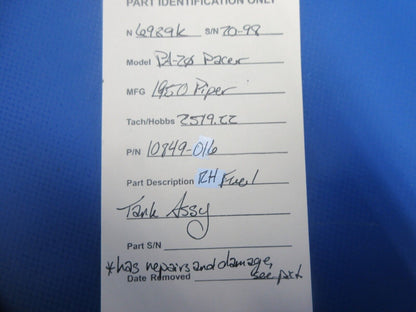 PART IDENTIFICATION ONLY
N 6989k S/N 20-98
Model PA-20 Pacer
MFG 1950 Piper
Tach/Hobbs 2519.22
P/N 10849-016
Part Description RH Fuel
Tank Assy
Part S/N
*has repairs and damage,
Date Removed see pict